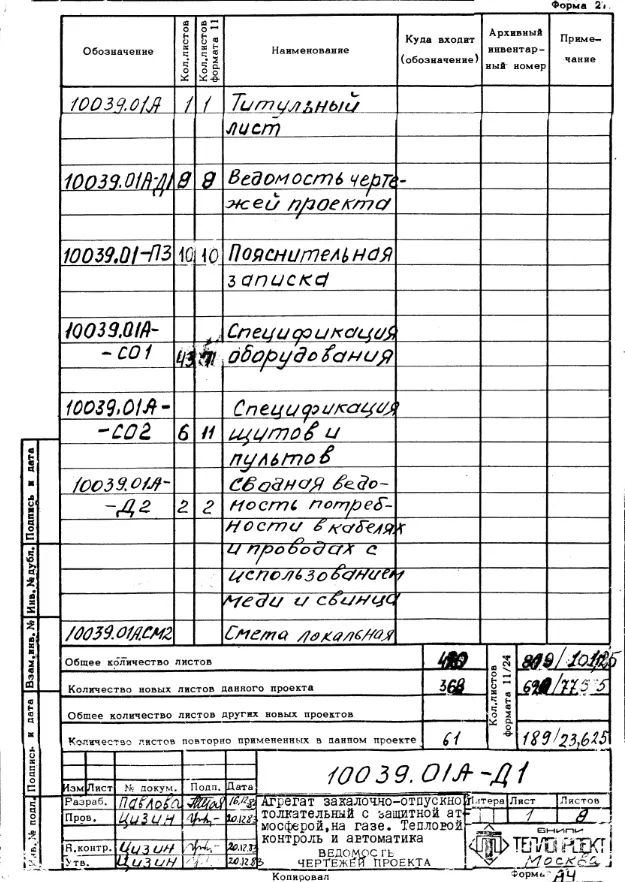 Форма 2
Обозначение
Кол.листов
Кол.листов формата 11
Наименование
Куда входит (обозначение)
Архивный инвентар-ный номер
Приме-чание
10039.01А 1 1 Титульный
лист
10039.01А-Д1 9 9 Ведомость черте-
жей проекта
10039.01-ПЗ 10 10 Пояснительная
записка
10039.01А- Спецификация
-СО1 43 71 оборудования
10039.01А- Спецификация
-СО2 6 11 щитов и
пультов
10039.01А- Сводная ведо-
-Д2 2 2 мость потреб-
ности в кабелях
и проводах с
использованием
меди и свинца
10039.01А.СМ2 Смета локальная
Общее количество листов
Количество новых листов данного проекта
Общее количество листов других новых проектов
Количество листов повторно примененных в данном проекте 61 189/23,625
Кол.листов формата 11/24
Подпись и дата
Инв.№дубл.
Взам.инв.№
Подпись и дата
Инв.№ подл.
10039.01А-Д1
Изм Лист № докум. Подп. Дата
Разраб. Павлова
Пров. Цизин 20.12.83
Н.контр. Цизин 20.12.83
Утв. Цизин 20.12.83
Агрегат закалочно-отпускной
толкательный с защитной ат-
мосферой,на газе. Тепловой
контроль и автоматика
ВЕДОМОСТЬ
ЧЕРТЕЖЕЙ ПРОЕКТА
Литера Лист Листов
1 9
ВНИПИ
ТЕПЛОПРОЕКТ
Москва
Копировал
Формат А4